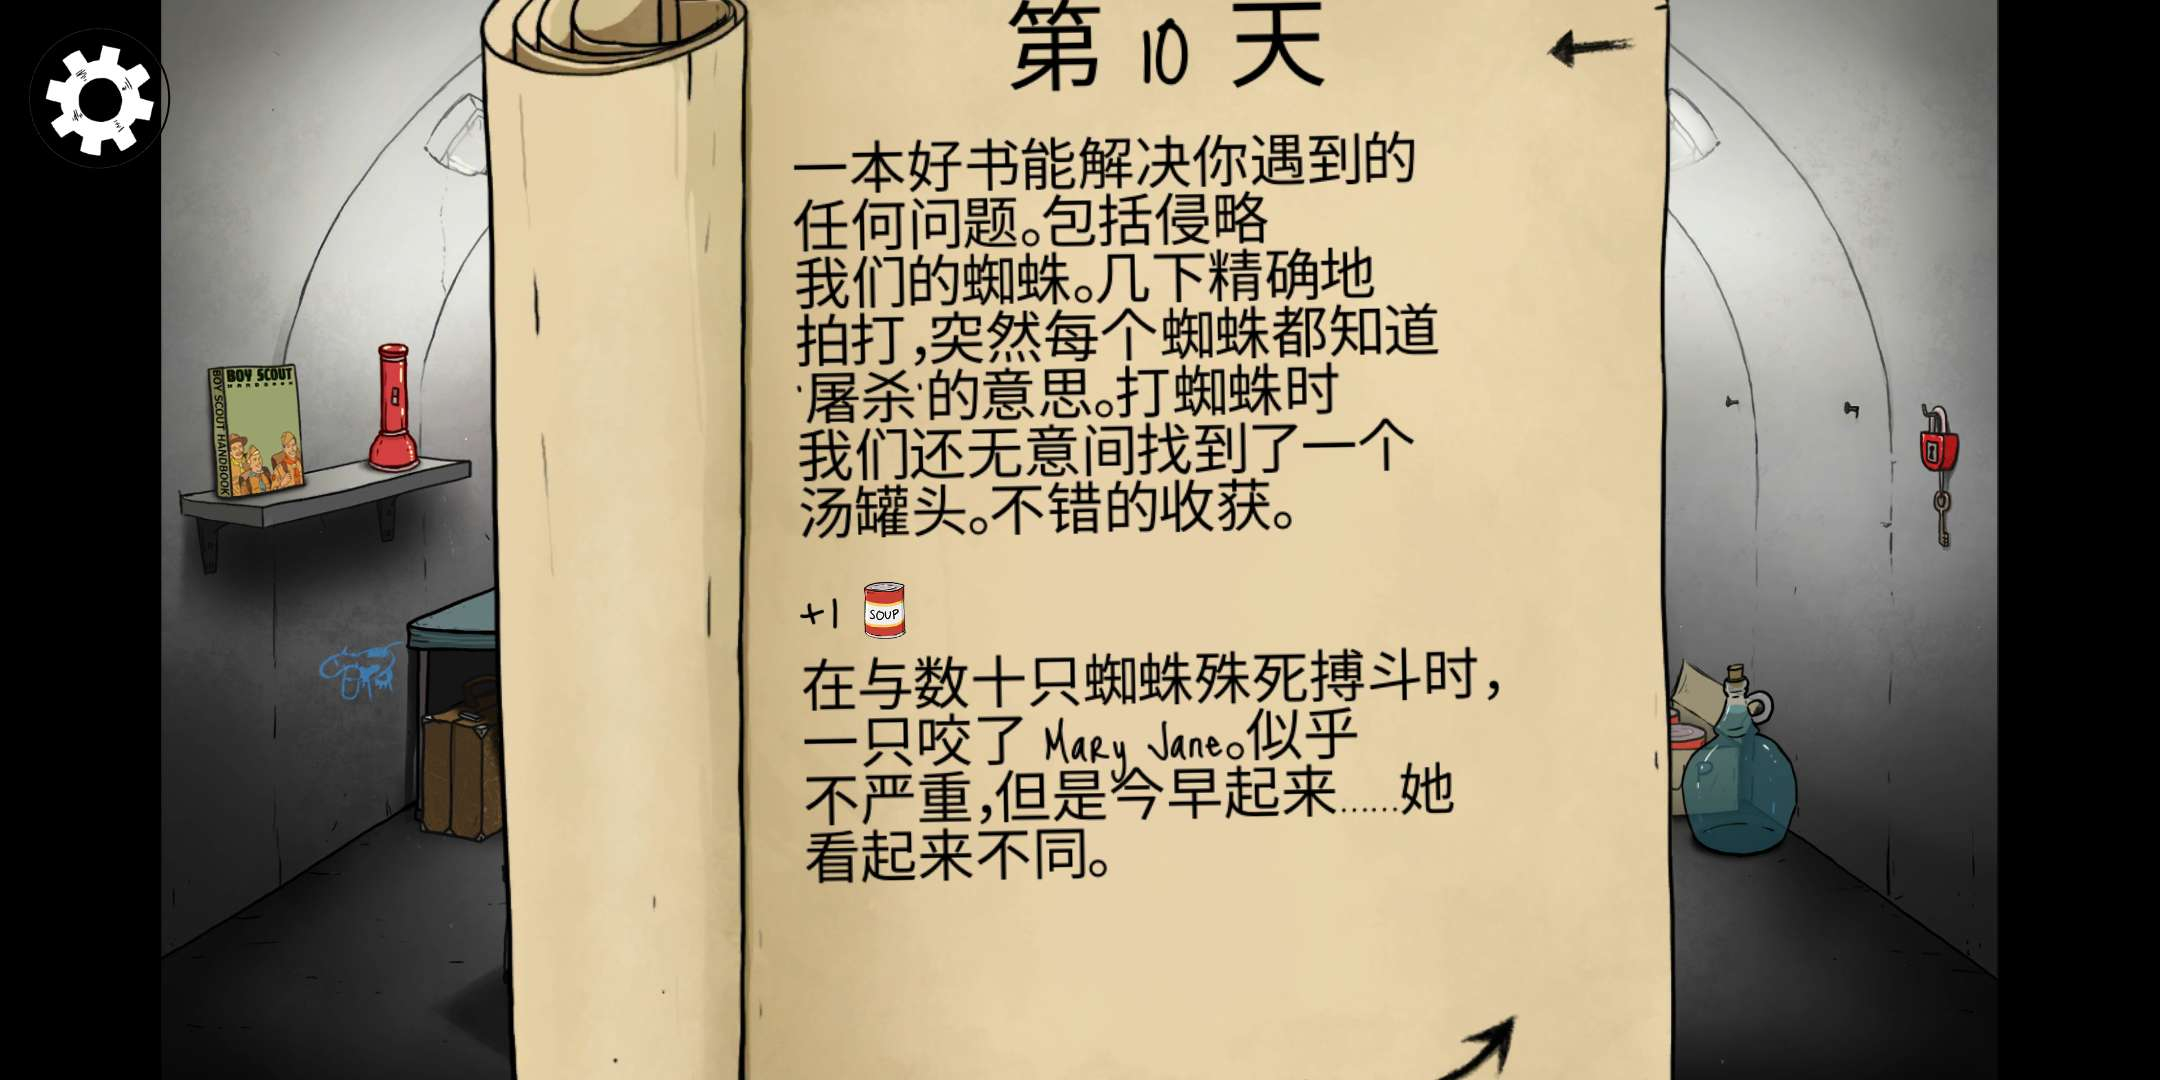 第 10 天
一本好书能解决你遇到的
任何问题。包括侵略
我们的蜘蛛。几下精确地
拍打,突然每个蜘蛛都知道
'屠杀'的意思。打蜘蛛时
我们还无意间找到了一个
汤罐头。不错的收获。
+1
SOUP
在与数十只蜘蛛殊死搏斗时，
一只咬了 Mary Jane。似乎
不严重,但是今早起来......她
看起来不同。
BOY SCOUT
HANDBOOK
BOY SCOUT HANDBOOK